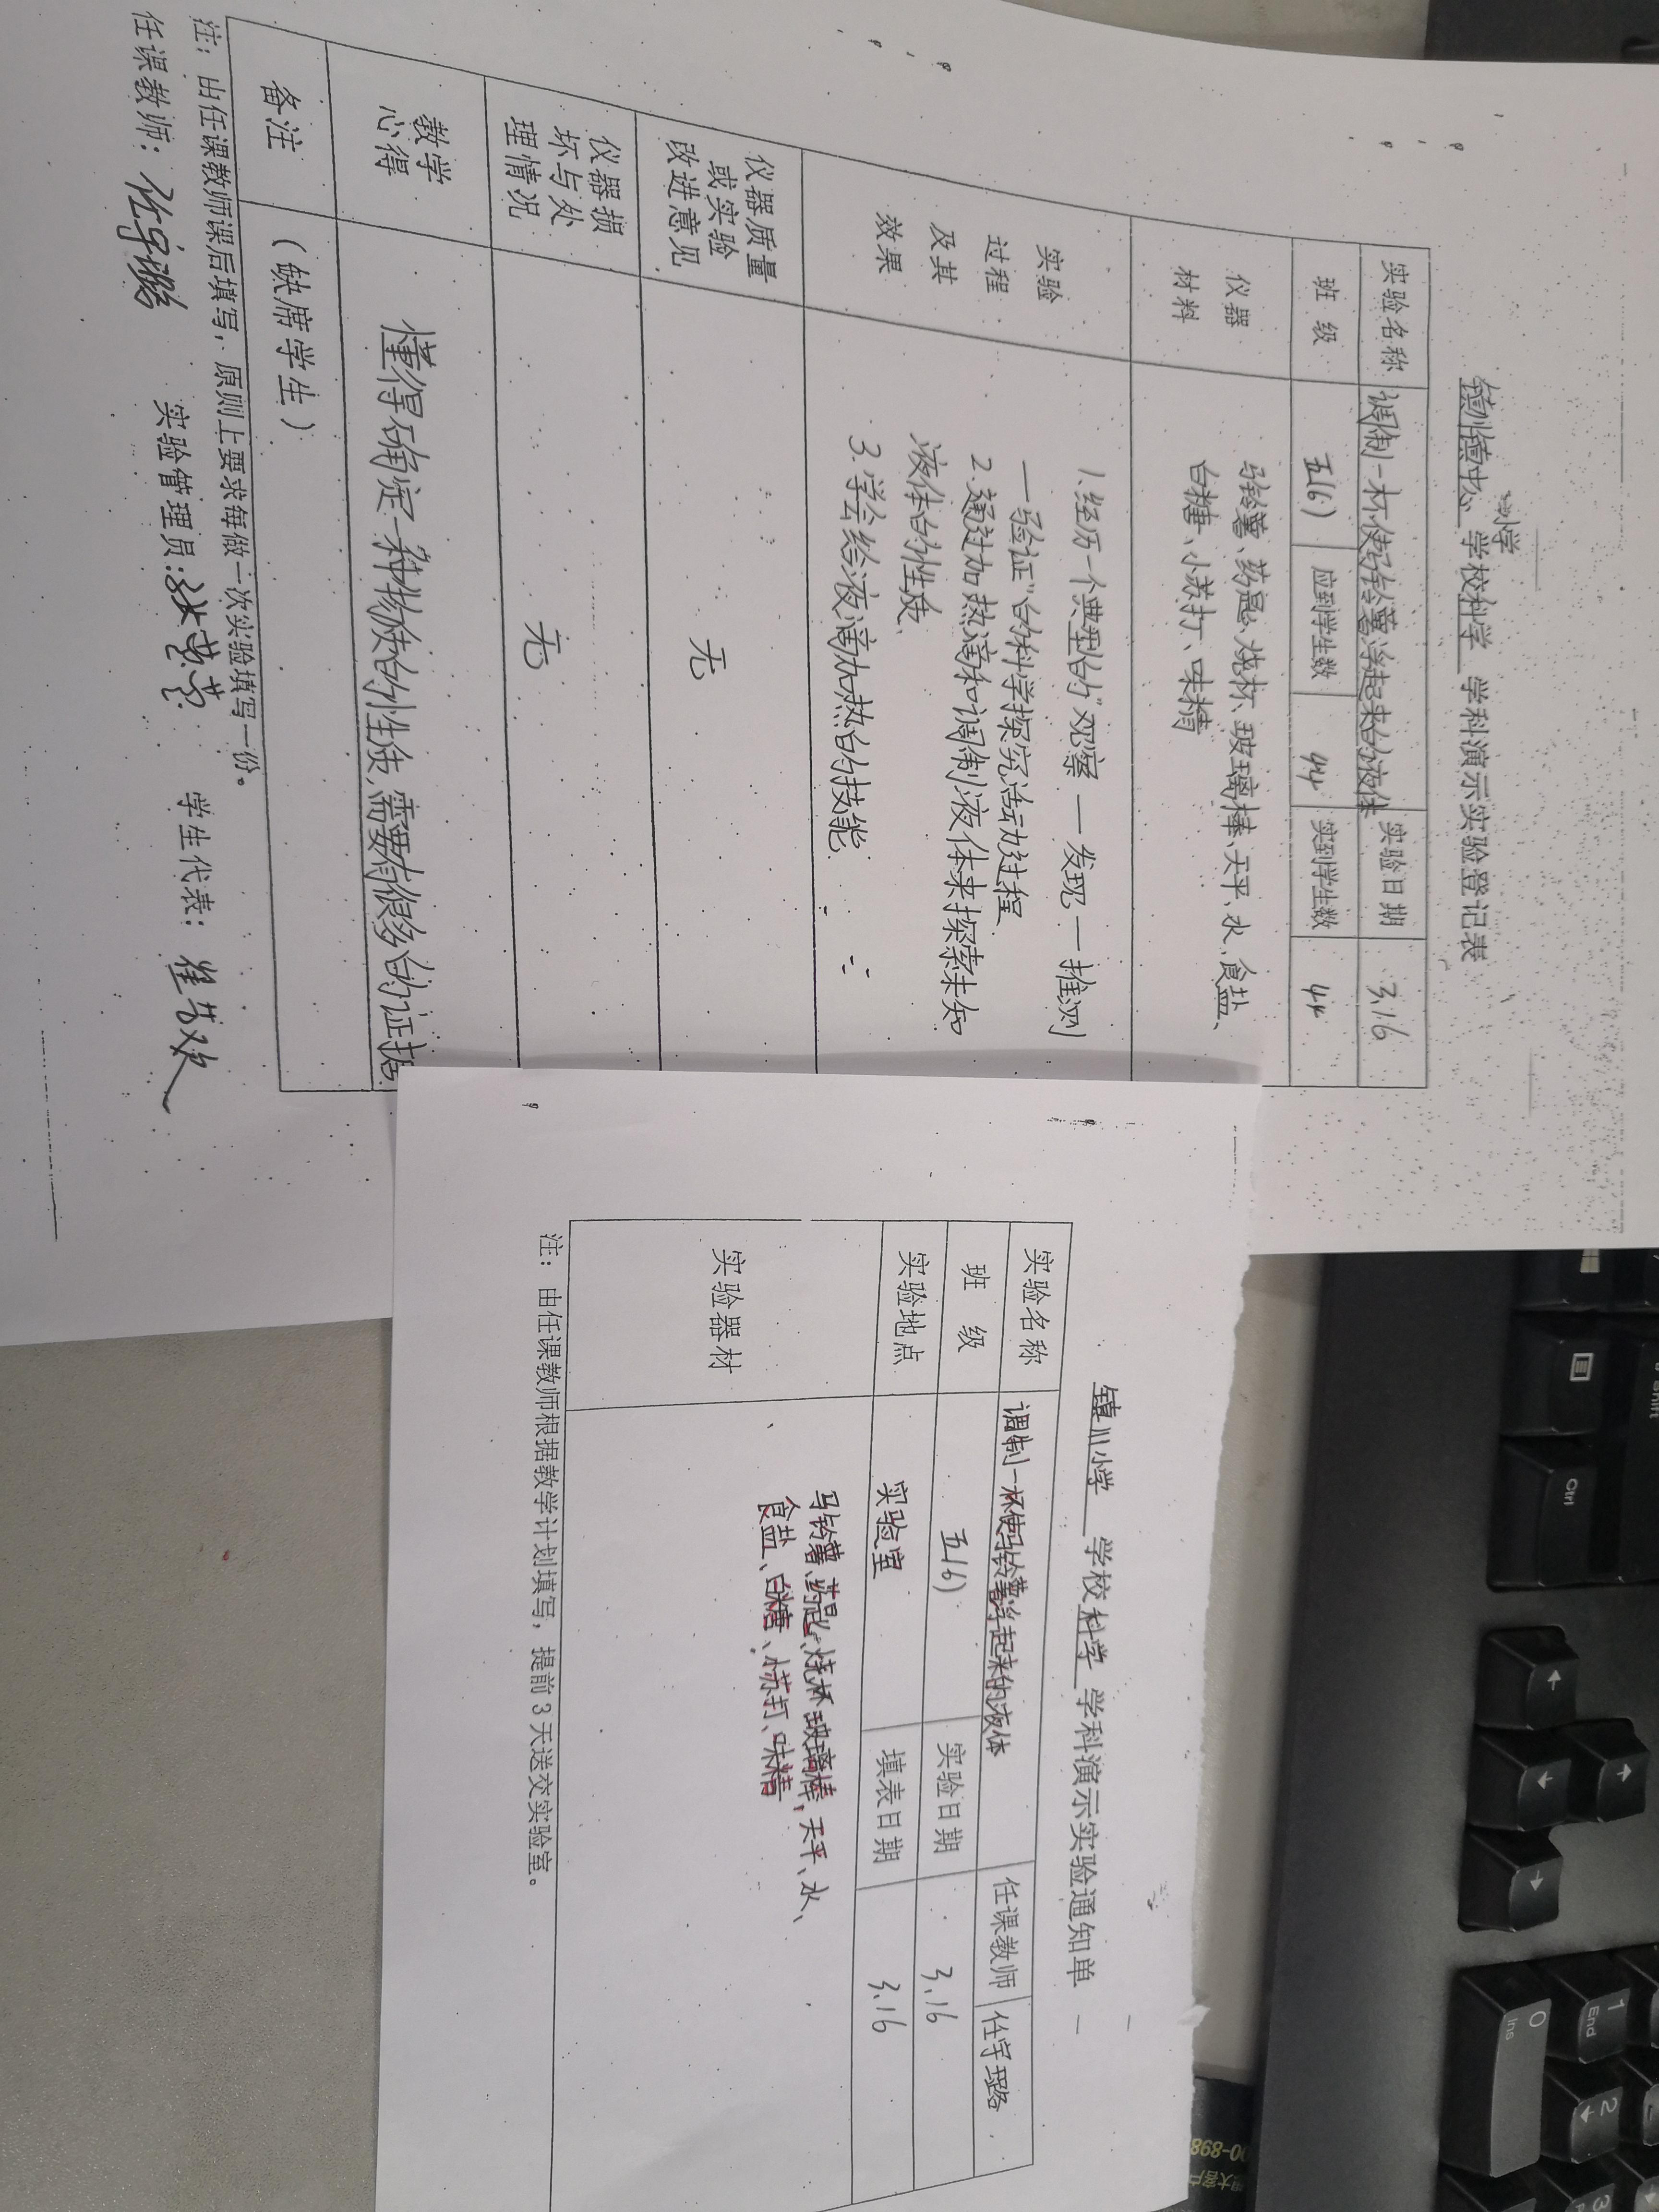 镇川镇中心小学 学校科学 学科演示实验登记表
实验名称 调制一杯使马铃薯浮起来的液体 实验日期 3.16
班 级 五(6) 应到学生数 44 实到学生数 44
仪器
材料
马铃薯、药匙、烧杯、玻璃棒、天平、水、食盐、
白糖、小苏打、味精
实验
过程
及其
效果
1.经历一个典型的“观察一发现一推测
一验证”的科学探究活动过程
2.通过加热滴和调制液体来探索未知
液体的性质、
3.学会给液滴加热的技能
仪器质量
或实验
改进意见
无
仪器损
坏与处
理情况
无
教学
心得
懂得确定一种物质的性质,需要有很多的证据
备注 (缺席学生)
注：由任课教师课后填写，原则上要求每做一次实验填写一份。
任课教师： 实验管理员: 学生代表：
镇川小学 学校科学 学科演示实验通知单
实验名称 调制一杯使马铃薯浮起来的液体 任课教师 任宇璐
班 级 五(6) 实验日期 3.16
实验地点 实验室 填表日期 3.16
实验器材
马铃薯、药匙、烧杯、玻璃棒,天平、水、
食盐、白糖、小苏打、味精
注：由任课教师根据教学计划填写，提前3天送交实验室。
Shift
Ctrl
0
Ins
1
End
2
3
00-898